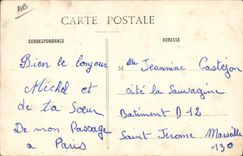 CARTE POSTALE
CORRESPONDANCE
ADRESSE
Bien le bonjour
Michel et
de ta Sœur
De mon Passage
a Paris
Mlle Jeannine Castejon
cité la Sauvagine
Batiment D-12
Saint Jerome Marseille
13e